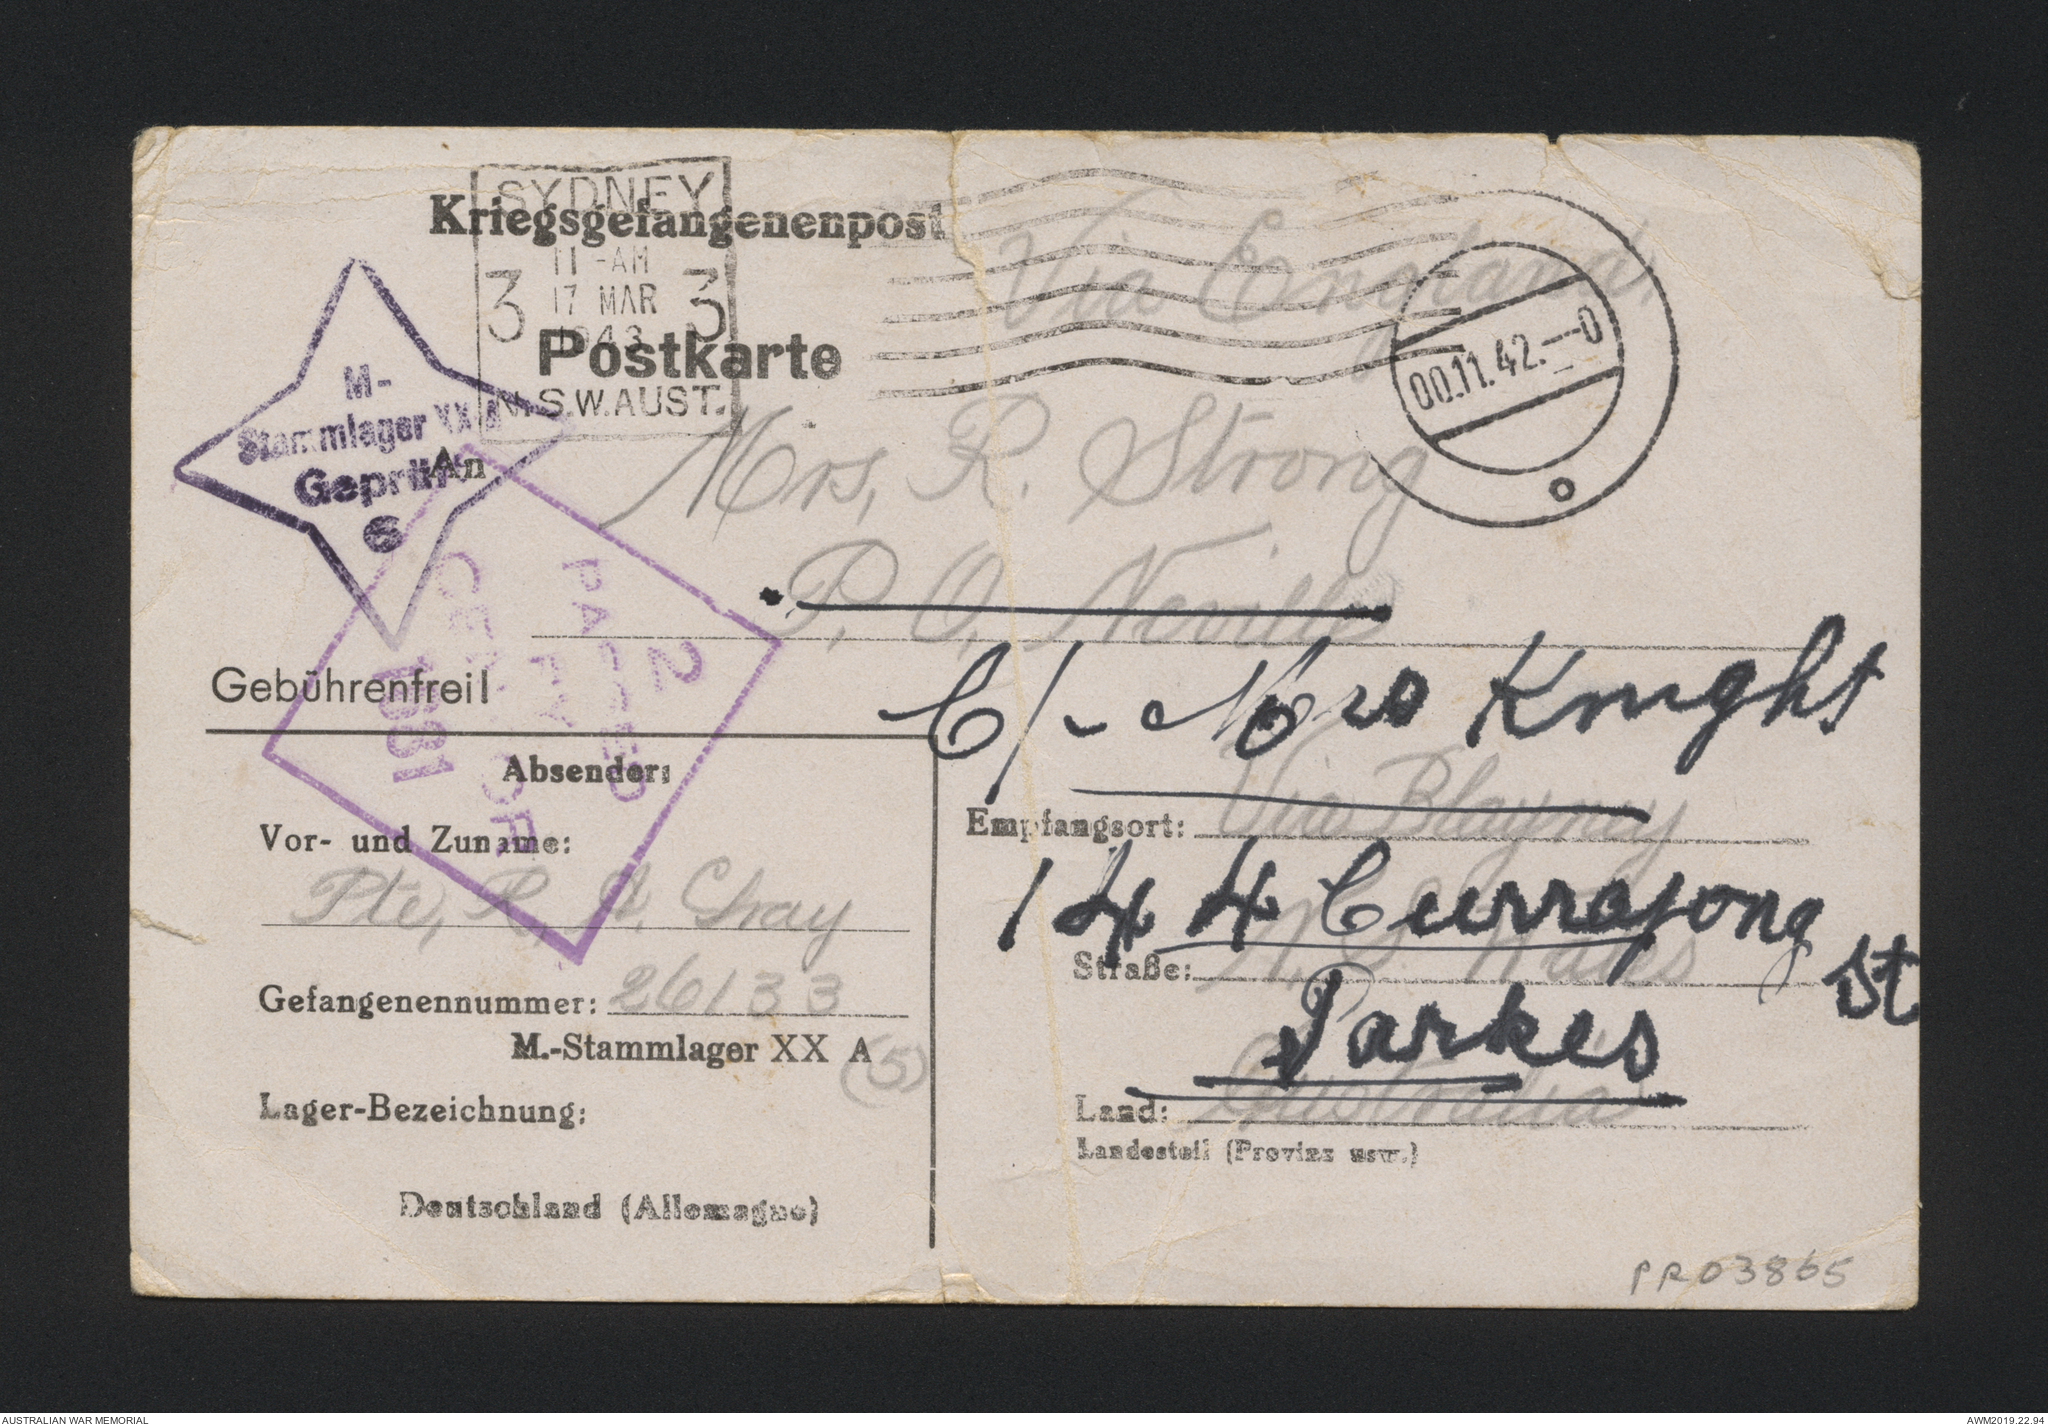 SYDNEY
Kriegsgefangenenpost
11-AM
3 17 MAR 3
1943
N.S.W. AUST.
Via England.
00.11.42.--0
Postkarte
M-
Stammlager XX A
Geprüft
6
An
Mrs, R. Strong
P, O, Neville
2
PASSED
BY
CENSOR
1831
Gebührenfrei!
C/- Mrs Knight
Absender:
Vor- und Zuname:
Pte, R, A, Gray
Gefangenennummer: 26133
M.-Stammlager XX A (5)
Lager-Bezeichnung:
Deutschland (Allemagne)
Empfangsort: Via Blayney
144 Currajong St
Straße: N. S. Wales
Parkes
Land: Australia
Landesteil (Provinz usw.)
PR03865
AUSTRALIAN WAR MEMORIAL
AWM2019.22.94